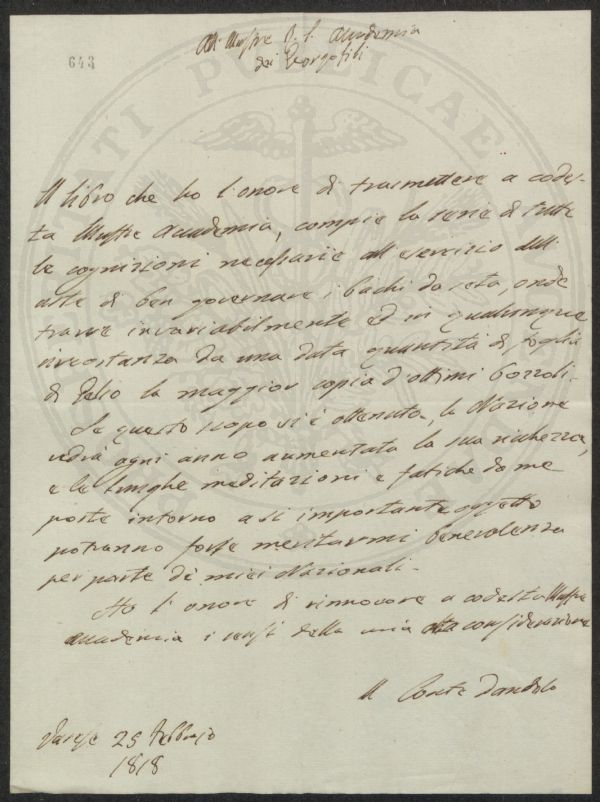 All' Illustre R. I. Accademia
dei Georgofili
643
Il libro che ho l'onore di trasmettere a codes-
ta Illustre Accademia, compie la serie di tutte
le cognizioni necessarie all'esercizio dell'
arte di ben governare i bachi da seta, onde
trarre invariabilmente ed in qualunque
circostanza da una data quantità di foglia
di gelso la maggior copia d'ottimi bozzoli.
Se questo scopo si è ottenuto, la Nazione
vedrà ogni anno aumentata la sua ricchezza,
e le lunghe meditazioni e fatiche da me
poste intorno a sì importante oggetto
potranno forse meritarmi benevolenza
per parte de' miei Nazionali.
Ho l'onore di rinnovare a codesta Illustre
Accademia i sensi della mia alta considerazione
Il Conte Dandolo
Varese 25 Febbrajo
1818